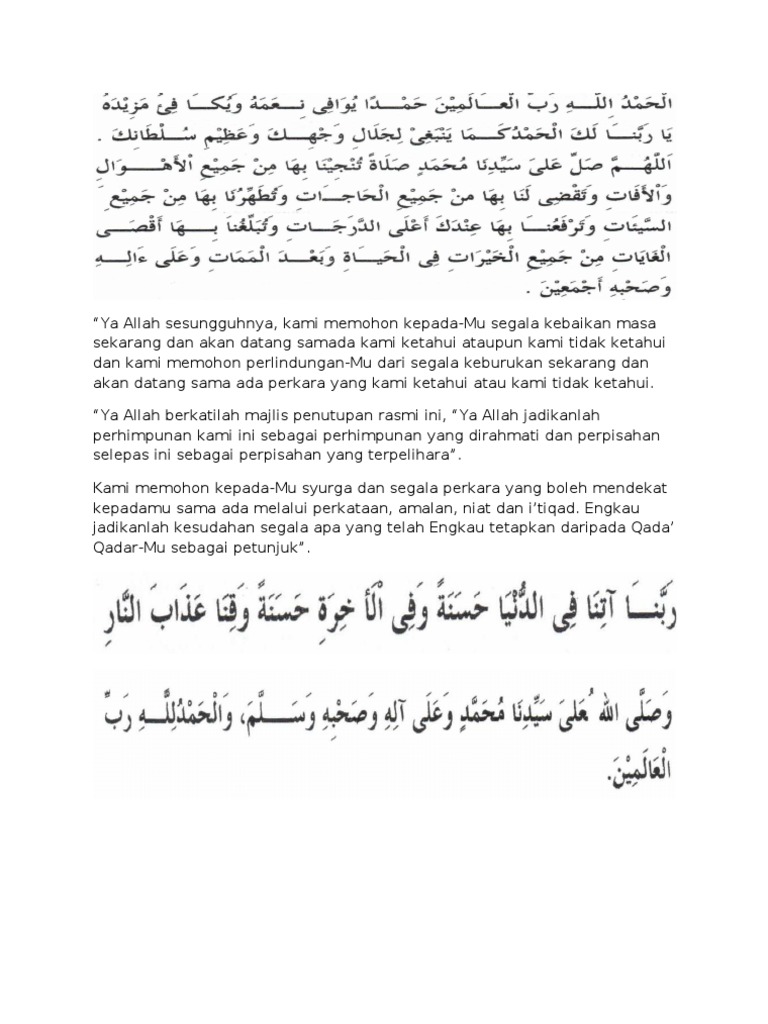 الْحَمْدُ لِلَّهِ رَبِّ الْعَالَمِيْنَ حَمْدًا يُوَافِى نِعَمَهُ وَيُكَا فِئُ مَزِيْدَهُ
يَا رَبَّنَا لَكَ الْحَمْدُ كَمَا يَنْبَغِىْ لِجَلَالِ وَجْهِكَ وَعَظِيْمِ سُلْطَانِكَ .
اَللّٰهُمَّ صَلِّ عَلىَ سَيِّدِنَا مُحَمَّدٍ صَلَاةً تُنْجِيْنَا بِهَا مِنْ جَمِيْعِ اْلأَهْوَالِ
وَاْلأَفَاتِ وَتَقْضِى لَنَا بِهَا منْ جَمِيْعِ الْحَاجَاتِ وَتُطَهِّرُنَا بِهَا مِنْ جَمِيْعِ
السَّيِئَاتِ وَتَرْفَعُنَا بِهَا عِنْدَكَ أَعْلَى الدَّرَجَاتِ وَتُبَلِّغُنَا بِهَا أَقْصَى
الْغَايَاتِ مِنْ جَمِيْعِ الْخَيْرَاتِ فِى الْحَيَاةِ وَبَعْدَ الْمَمَاتِ وَعَلَى ءَالِهِ
وَصَحْبِهِ أَجْمَعِيْنَ .
“Ya Allah sesungguhnya, kami memohon kepada-Mu segala kebaikan masa
sekarang dan akan datang samada kami ketahui ataupun kami tidak ketahui
dan kami memohon perlindungan-Mu dari segala keburukan sekarang dan
akan datang sama ada perkara yang kami ketahui atau kami tidak ketahui.
“Ya Allah berkatilah majlis penutupan rasmi ini, “Ya Allah jadikanlah
perhimpunan kami ini sebagai perhimpunan yang dirahmati dan perpisahan
selepas ini sebagai perpisahan yang terpelihara”.
Kami memohon kepada-Mu syurga dan segala perkara yang boleh mendekat
kepadamu sama ada melalui perkataan, amalan, niat dan i’tiqad. Engkau
jadikanlah kesudahan segala apa yang telah Engkau tetapkan daripada Qada’
Qadar-Mu sebagai petunjuk”.
رَبَّنَا آتِنَا فِى الدُّنْيَا حَسَنَةً وَفِى اْلأَ خِرَةِ حَسَنَةً وَقِنَا عَذَابَ النَّارِ
وَصَلَّى اللهُ عَلىَ سَيِّدِنَا مُحَمَّدٍ وَعَلَى آلِهِ وَصَحْبِهِ وَسَلَّمَ، وَالْحَمْدُلِلَّهِ رَبِّ
الْعَالَمِيْنَ.